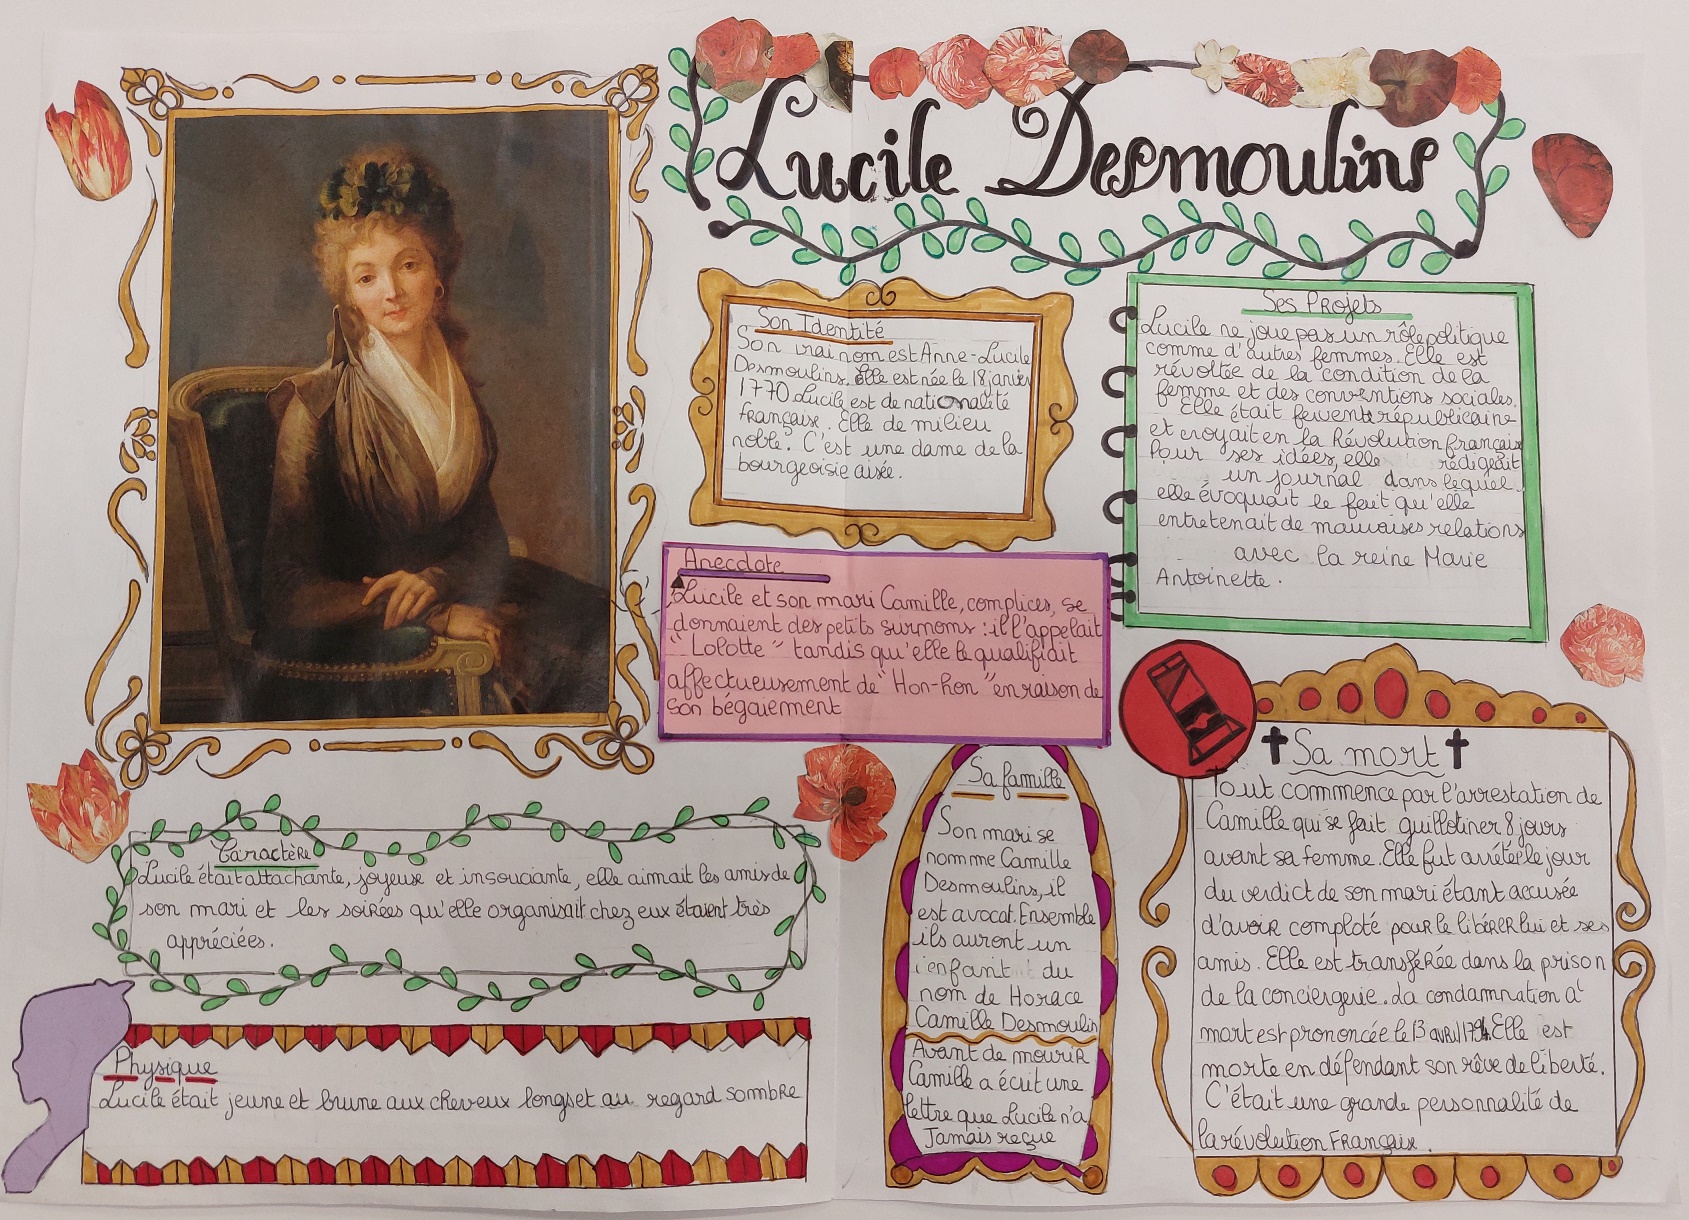 Lucile Desmoulins
Son Identité
Son vrai nom est Anne-Lucile
Desmoulins. Elle est née le 18 janvier
1770. Lucile est de nationalité
française. Elle de milieu
noble. C'est une dame de la
bourgeoisie aisée.
Ses Projets
Lucile ne joue pas un rôle politique
comme d'autres femmes. Elle est
révoltée de la condition de la
femme et des conventions sociales.
Elle était fervente républicaine
et croyait en la Révolution française
Pour ses idées, elle rédigeait
un journal dans lequel
elle évoquait le fait qu'elle
entretenait de mauvaises relations
avec la reine Marie
Antoinette.
Anecdote
Lucile et son mari Camille, complices, se
donnaient des petits surnoms : il l'appelait
"Lolotte" tandis qu'elle le qualifiait
affectueusement de "Hon-hon" en raison de
son bégaiement
Caractère
Lucile était attachante, joyeuse et insouciante, elle aimait les amis de
son mari et les soirées qu'elle organisait chez eux étaient très
appréciées.
Physique
Lucile était jeune et brune aux cheveux longs et au regard sombre
Sa famille
Son mari se
nomme Camille
Desmoulins, il
est avocat. Ensemble
ils auront un
enfant du
nom de Horace
Camille Desmoulin
Avant de mourir
Camille a écrit une
lettre que Lucile n'a
Jamais reçue
Sa mort
Tout commence par l'arrestation de
Camille qui se fait guillotiner 8 jours
avant sa femme. Elle fut arrêtée le jour
du verdict de son mari étant accusée
d'avoir comploté pour le libérer lui et ses
amis. Elle est transférée dans la prison
de la conciergerie. La condamnation à
mort est prononcée le 13 avril 1794. Elle est
morte en défendant son rêve de liberté.
C'était une grande personnalité de
la révolution Française.